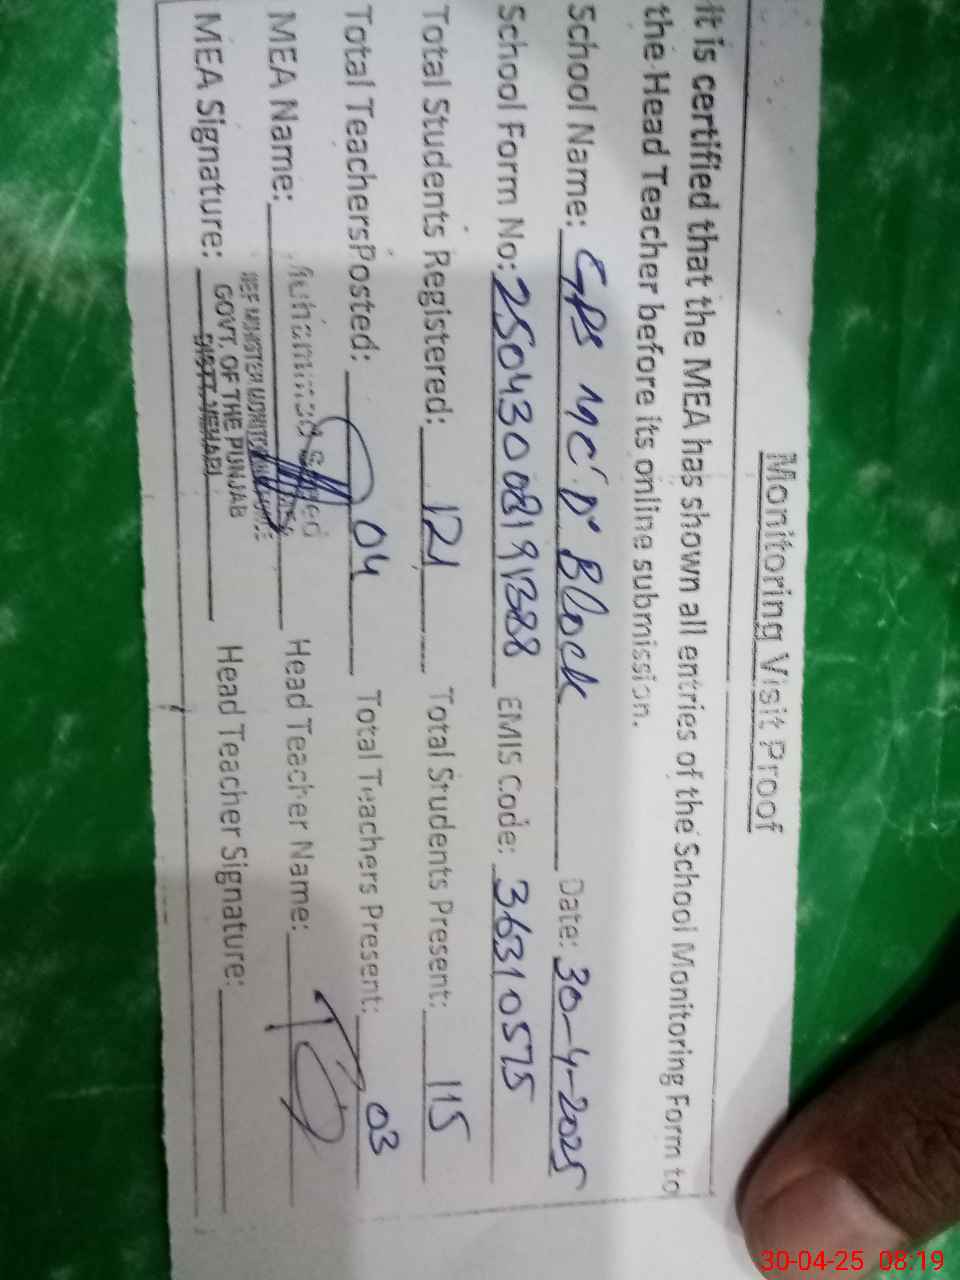 Monitoring Visit Proof
It is certified that the MEA has shown all entries of the School Monitoring Form to
the Head Teacher before its online submission.
School Name: GPS MC D Block Date: 30-4-2025
School Form No: 25043008191388 EMIS Code: 36310575
Total Students Registered: 121 Total Students Present: 115
Total TeachersPosted: 04 Total Teachers Present: 03
MEA Name: Muhammad Head Teacher Name:
MEA Signature: Head Teacher Signature:
GOVT. OF THE PUNJAB
DISTT. VEHARI
30-04-25 08:19